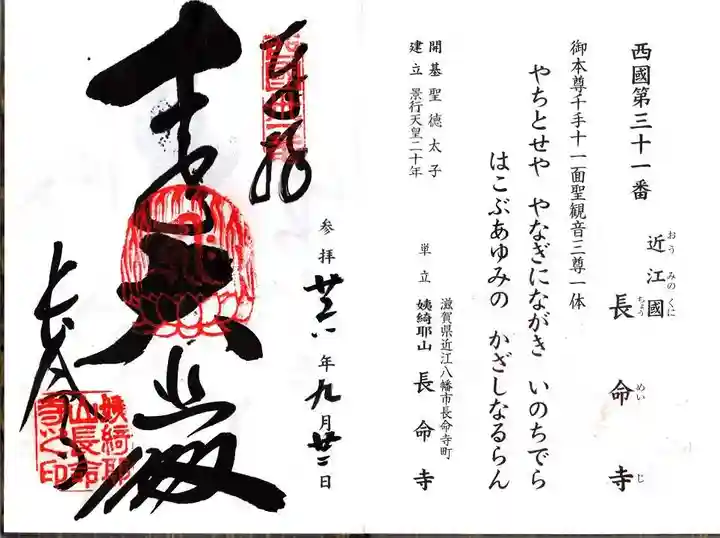 西國第三十一番
近江國 長命寺
おうみのくに ちょうめいじ
御本尊千手十一面聖観音三尊一体
やちとせや やなぎにながき いのちでら
はこぶあゆみの かざしなるらん
開基聖徳太子
建立景行天皇二十年
滋賀県近江八幡市長命寺町
単立 姨綺耶山 長命寺
参拝 年九月廿二日
姨綺耶
山長命
寺之印